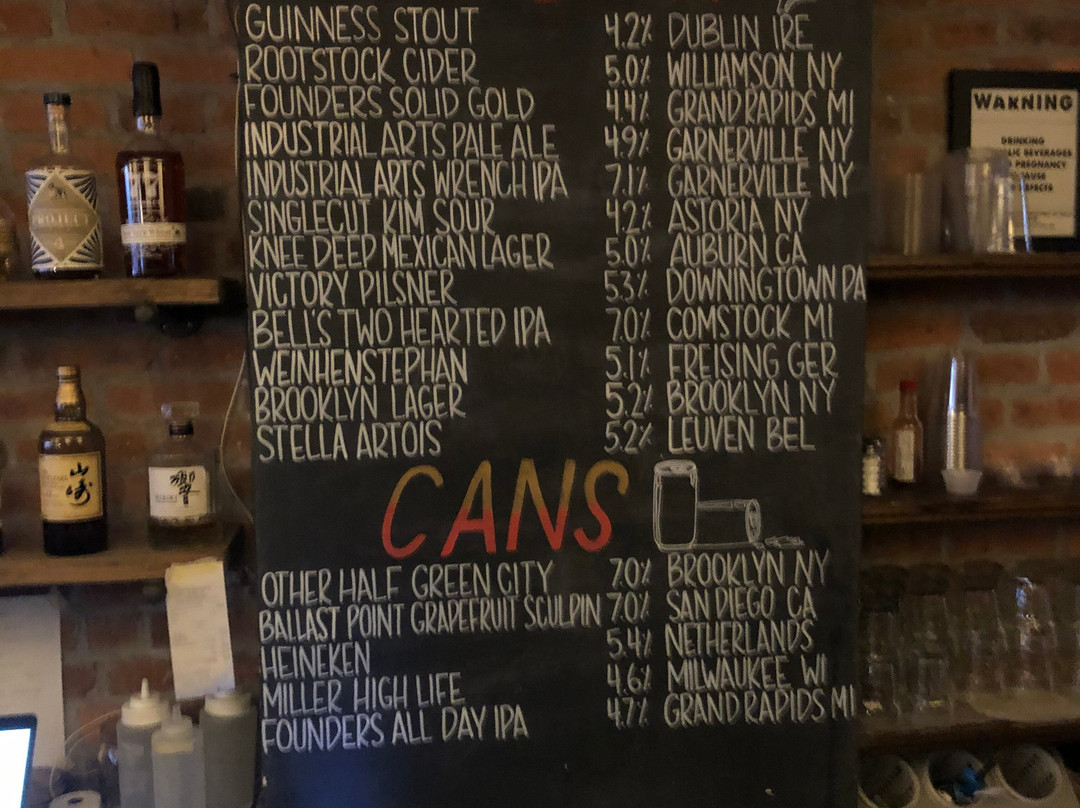 GUINNESS STOUT 4.2% DUBLIN IRE
ROOTSTOCK CIDER 5.0% WILLIAMSON NY
FOUNDERS SOLID GOLD 4.4% GRAND RAPIDS MI
INDUSTRIAL ARTS PALE ALE 4.9% GARNERVILLE NY
INDUSTRIAL ARTS WRENCH IPA 7.1% GARNERVILLE NY
SINGLECUT KIM SOUR 4.2% ASTORIA NY
KNEE DEEP MEXICAN LAGER 5.0% AUBURN CA
VICTORY PILSNER 5.3% DOWNINGTOWN PA
BELL'S TWO HEARTED IPA 7.0% COMSTOCK MI
WEINHENSTEPHAN 5.1% FREISING GER
BROOKLYN LAGER 5.2% BROOKLYN NY
STELLA ARTOIS 5.2% LEUVEN BEL
CANS
OTHER HALF GREEN CITY 7.0% BROOKLYN NY
BALLAST POINT GRAPEFRUIT SCULPIN 7.0% SAN DIEGO CA
HEINEKEN 5.4% NETHERLANDS
MILLER HIGH LIFE 4.6% MILWAUKEE WI
FOUNDERS ALL DAY IPA 4.7% GRAND RAPIDS MI
WARNING
DRINKING
BEVERAGES
PREGNANCY
PROJECT
4
山崎
響